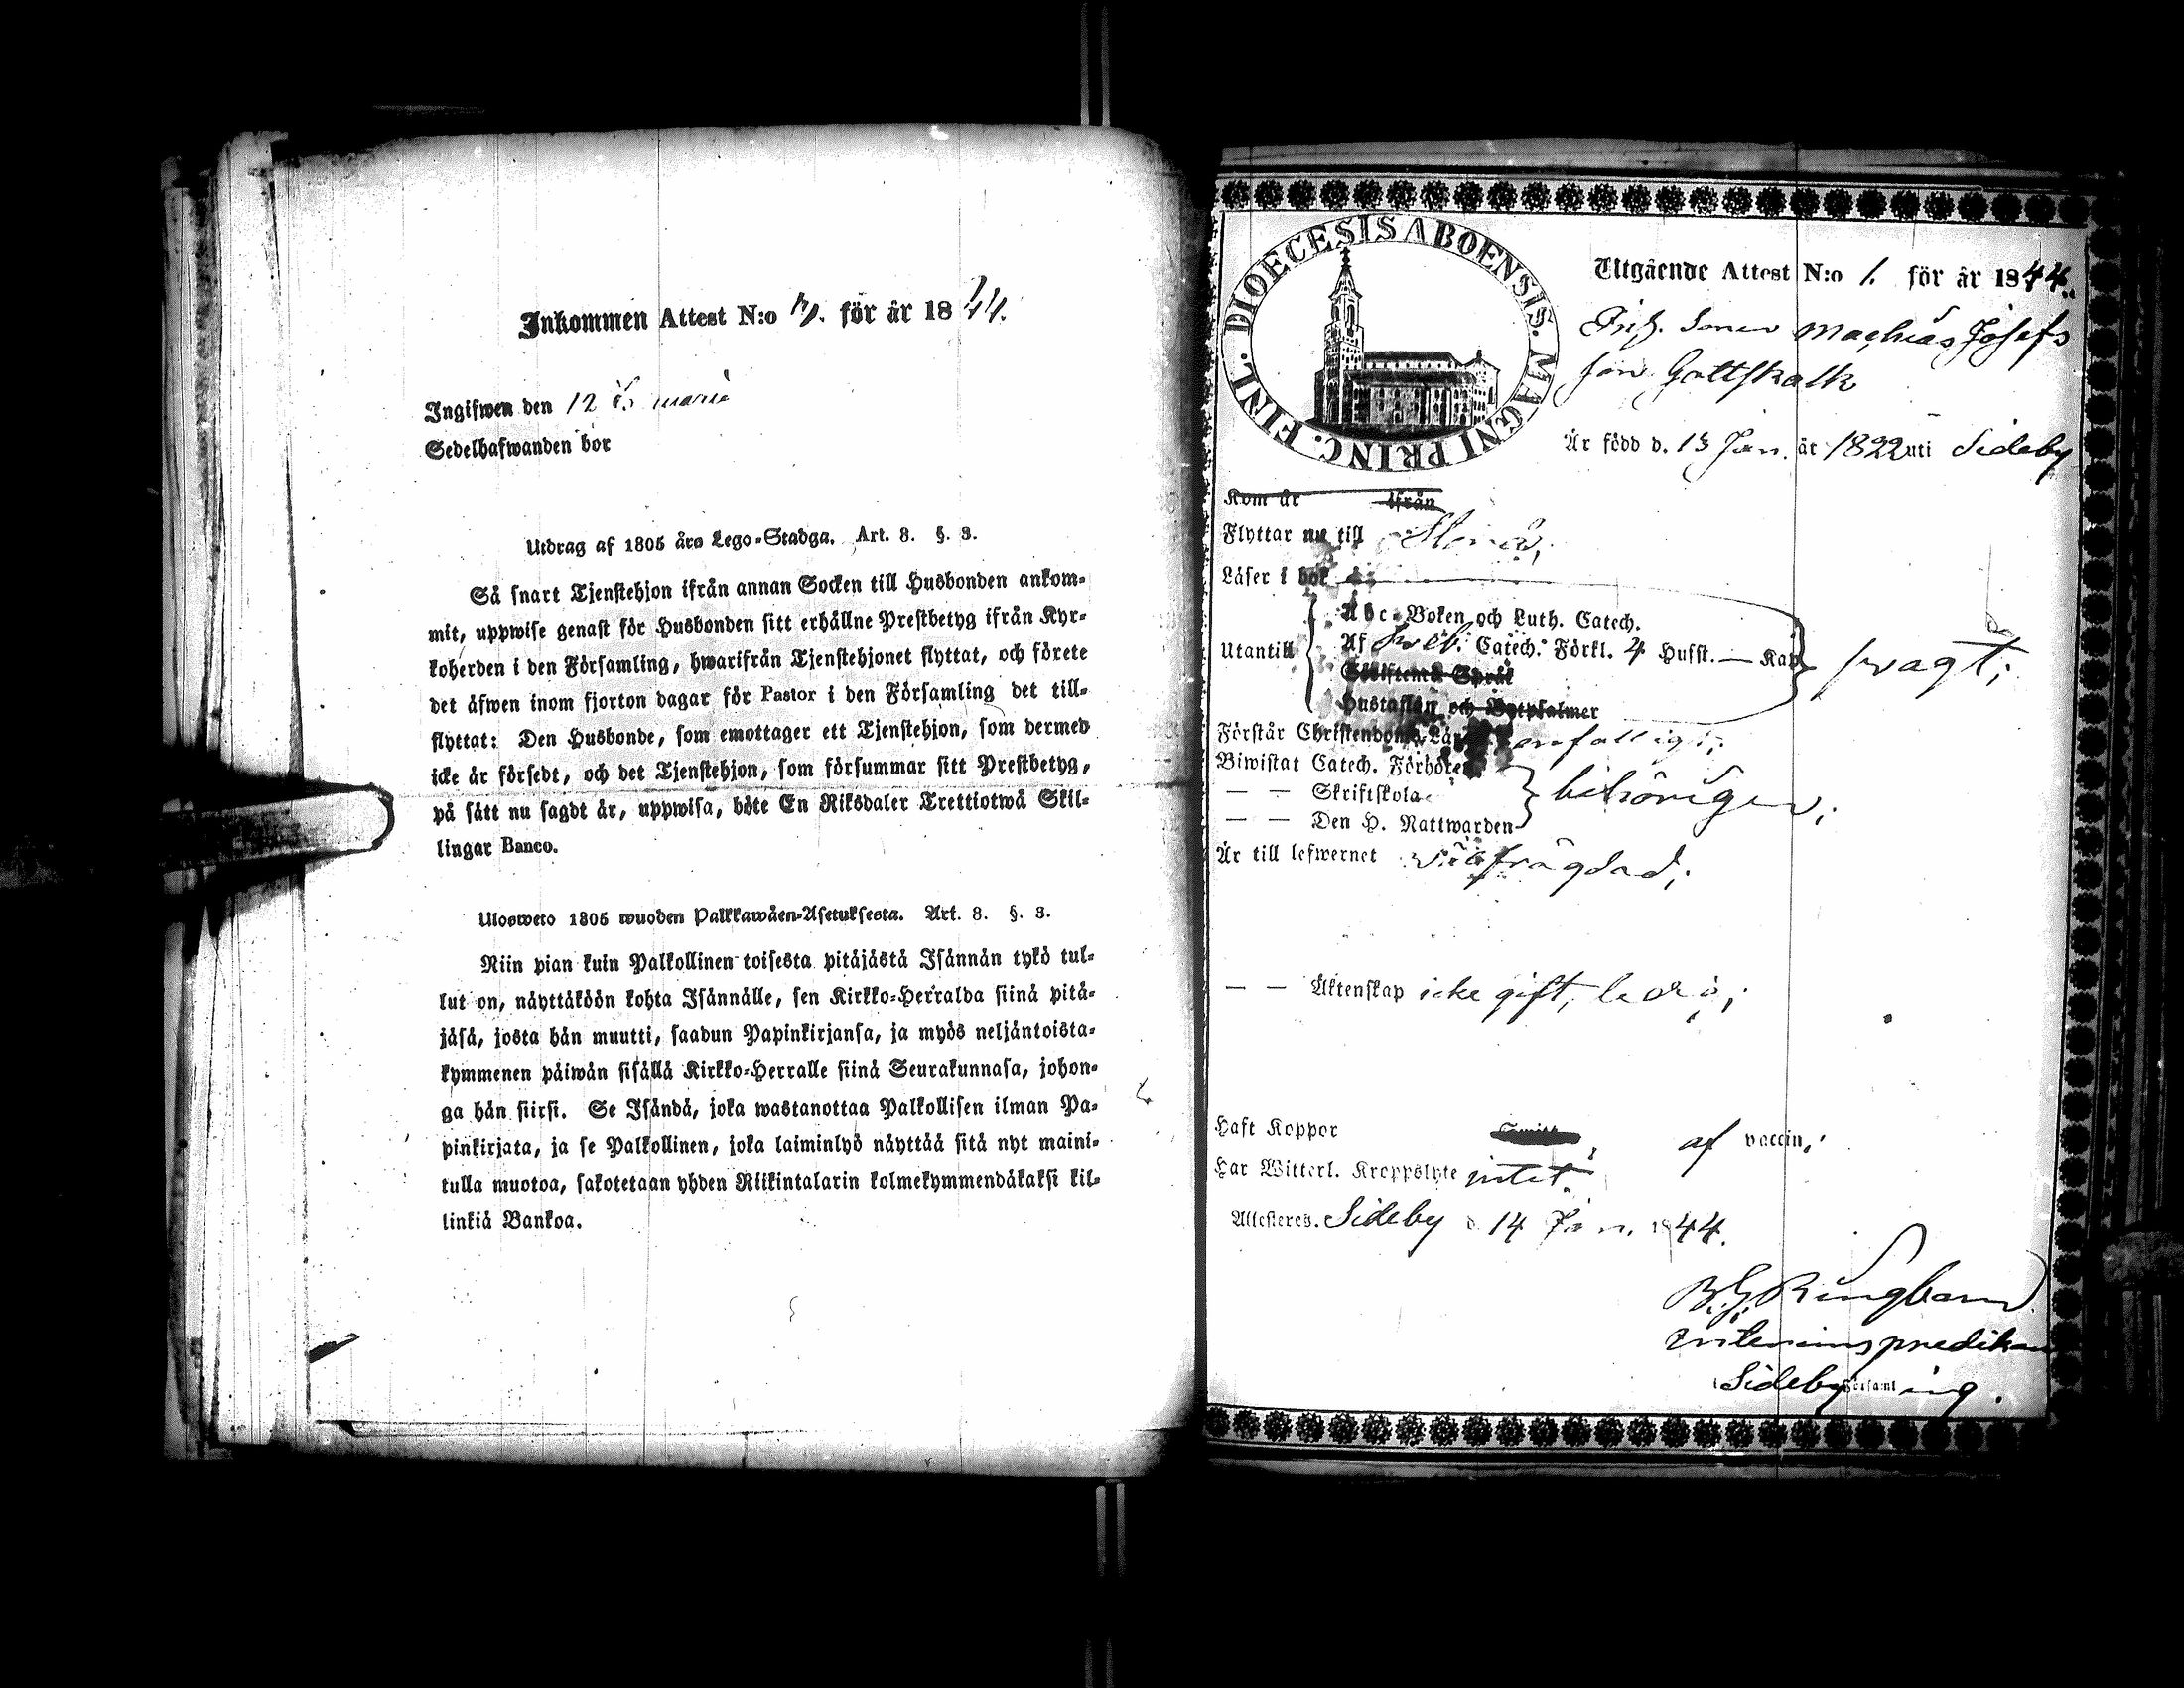 Inkommen Attest N:o för år 1844.
Ingifwen den 12
Sedelhafwanden bor
Utdrag af 1805 års Lego-Stadga. Art. 8. §. 3.
Så snart Tjenstehjon ifrån annan Socken till Husbonden ankom-
mit, uppwise genast för Husbonden sitt erhållne Prestbetyg ifrån Kyr-
koherden i den Församling, hwarifrån Tjenstehjonet flyttat, och förete
det äfwen inom fjorton dagar för Pastor i den Församling det till-
flyttat: Den Husbonde, som emottager ett Tjenstehjon, som dermed
icke är försedt, och det Tjenstehjon, som försummar sitt Prestbetyg,
på sätt nu sagdt är, uppwisa, böte En Riksdaler Trettiotwå Skil-
lingar Banco.
Ulosweto 1805 wuoden Palkkawäen-Asetuksesta. Art. 8. §. 3.
Niin pian kuin Palkollinen toisesta pitäjästä Isännän tykö tul-
lut on, näyttäköön kohta Isännälle, sen Kirkko-Herralda siinä pitä-
jäsä, josta hän muutti, saadun Papinkirjansa, ja myös neljäntoista-
kymmenen päiwän sisällä Kirkko-Herralle siinä Seurakunnasa, johon-
ga hän siirsi. Se Isändä, joka wastanottaa Palkollisen ilman Pa-
pinkirjata, ja se Palkollinen, joka laiminlyö näyttää sitä nyt maini-
tulla muotoa, sakotetaan yhden Riikintalarin kolmekymmendäkaksi kil-
linkiä Bankoa.
DIOECESIS ABOENSIS. MAGNI PRINC. FINL.
Utgående Attest N:o 1. för år 1844.
Mathias Josefs
son Gottskalk
Är född d. 13 Jan. år 1822 uti Sideby
Kom år ifrån
Flyttar nu till
Läser i bok
Abc-Boken och Luth. Catech.
Utantill Af Sveb. Catech. Förkl. 4 Hufst. — Kap
Skriftenes Språk
Hustaflan och Botpsalmer
Förstår Christendoms Lär enfaldigt;
Biwistat Catech. Förhören
— — Skriftskola behörigen;
— — Den H. Nattwarden
Är till lefwernet välfrägdad;
— — Äktenskap icke gift, ledig;
Haft Koppor af vaccin,
Har Witterl. Kroppslyte intet.
Attesteres. Sideby d. 14 Jan. 1844.
B. G. Ringbom
Sideby Församling.